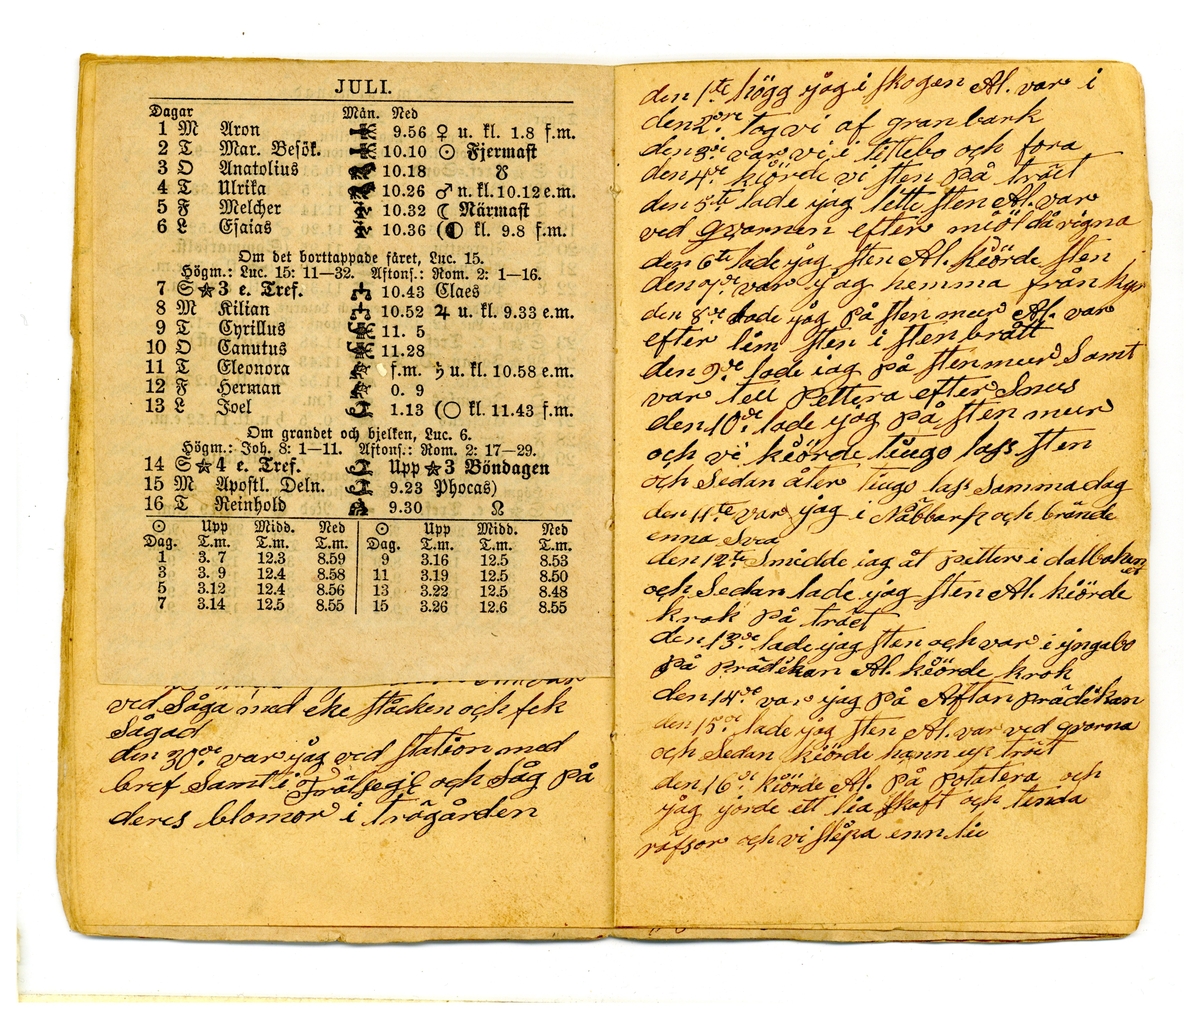 JULI.
Dagar Mån. Ned
1 M Aron 9.56 ♀ u. kl. 1.8 f.m.
2 T Mar. Besök. 10.10 ☉ Fjermast
3 O Anatolius 10.18 ☋
4 T Ulrika 10.26 ♂ n. kl. 10.12 e.m.
5 F Melcher 10.32 ☾ Närmast
6 L Esaias 10.36 (◐ kl. 9.8 f.m.
Om det borttappade fåret, Luc. 15.
Högm.: Luc. 15: 11—32. Aftons.: Rom. 2: 1—16.
7 S ★ 3 e. Tref. 10.43 Claes
8 M Kilian 10.52 ♃ u. kl. 9.33 e.m.
9 T Cyrillus 11. 5
10 O Canutus 11.28
11 T Eleonora f.m. ♄ u. kl. 10.58 e.m.
12 F Herman 0. 9
13 L Joel 1.13 (○ kl. 11.43 f.m.
Om grandet och bjelken, Luc. 6.
Högm.: Joh. 8: 1—11. Aftons.: Rom. 2: 17—29.
14 S ★ 4 e. Tref. Upp ★ 3 Böndagen
15 M Apostl. Deln. 9.23 Phocas)
16 T Reinhold 9.30 ☊
☉ Upp Midd. Ned ☉ Upp Midd. Ned
Dag. T.m. T.m. T.m. Dag. T.m. T.m. T.m.
1 3. 7 12.3 8.59 9 3.16 12.5 8.53
3 3. 9 12.4 8.58 11 3.19 12.5 8.50
5 3.12 12.4 8.56 13 3.22 12.5 8.48
7 3.14 12.5 8.55 15 3.26 12.6 8.55
ved Såga med eke ståcken och fek
Sågad
den 30de var jåg ved station med
bref Samt i Frälsege och Såg på
deres blomor i trägården
den 1te högg jåg i skogen Al. var i
den 2dre tog vi af granbark
den 3de var vi i tettebo och fora
den 4de kiörde vi sten på trået
den 5te lade jag lette sten Al. var
ved qvarnen efter miöl dårigna
den 6te lade jåg sten Al. kiörde sten
den 7de var jåg hemma från
den 8de lade jåg på stenmeur Al. var
efter lim sten i stenbrått
den 9de lade iag på stenmeur Samt
var tell Pettera efter Snus
den 10de lade jåg på sten meur
och vi kiörde tiugo lass sten
och Sedan åter tiugo lass Samma dag
den 11te var jåg i Nåbbarp och brände
enna Sva
den 12te Smidde iag åt petter i dalbaken
och Sedan lade jåg sten Al. kiörde
krok på trået
den 13de lade jåg sten och var i yngabo
på Prädikan Al. kiörde krok
den 14de var jåg på Aftan Prädikan
den 15de lade jåg sten Al. var ved qvarna
och Sedan kiörde hann up trået
den 16de kiörde Al. på Potatera och
jåg yorde ett lia skaft och tenda
råfsor och vi slepa enn lie